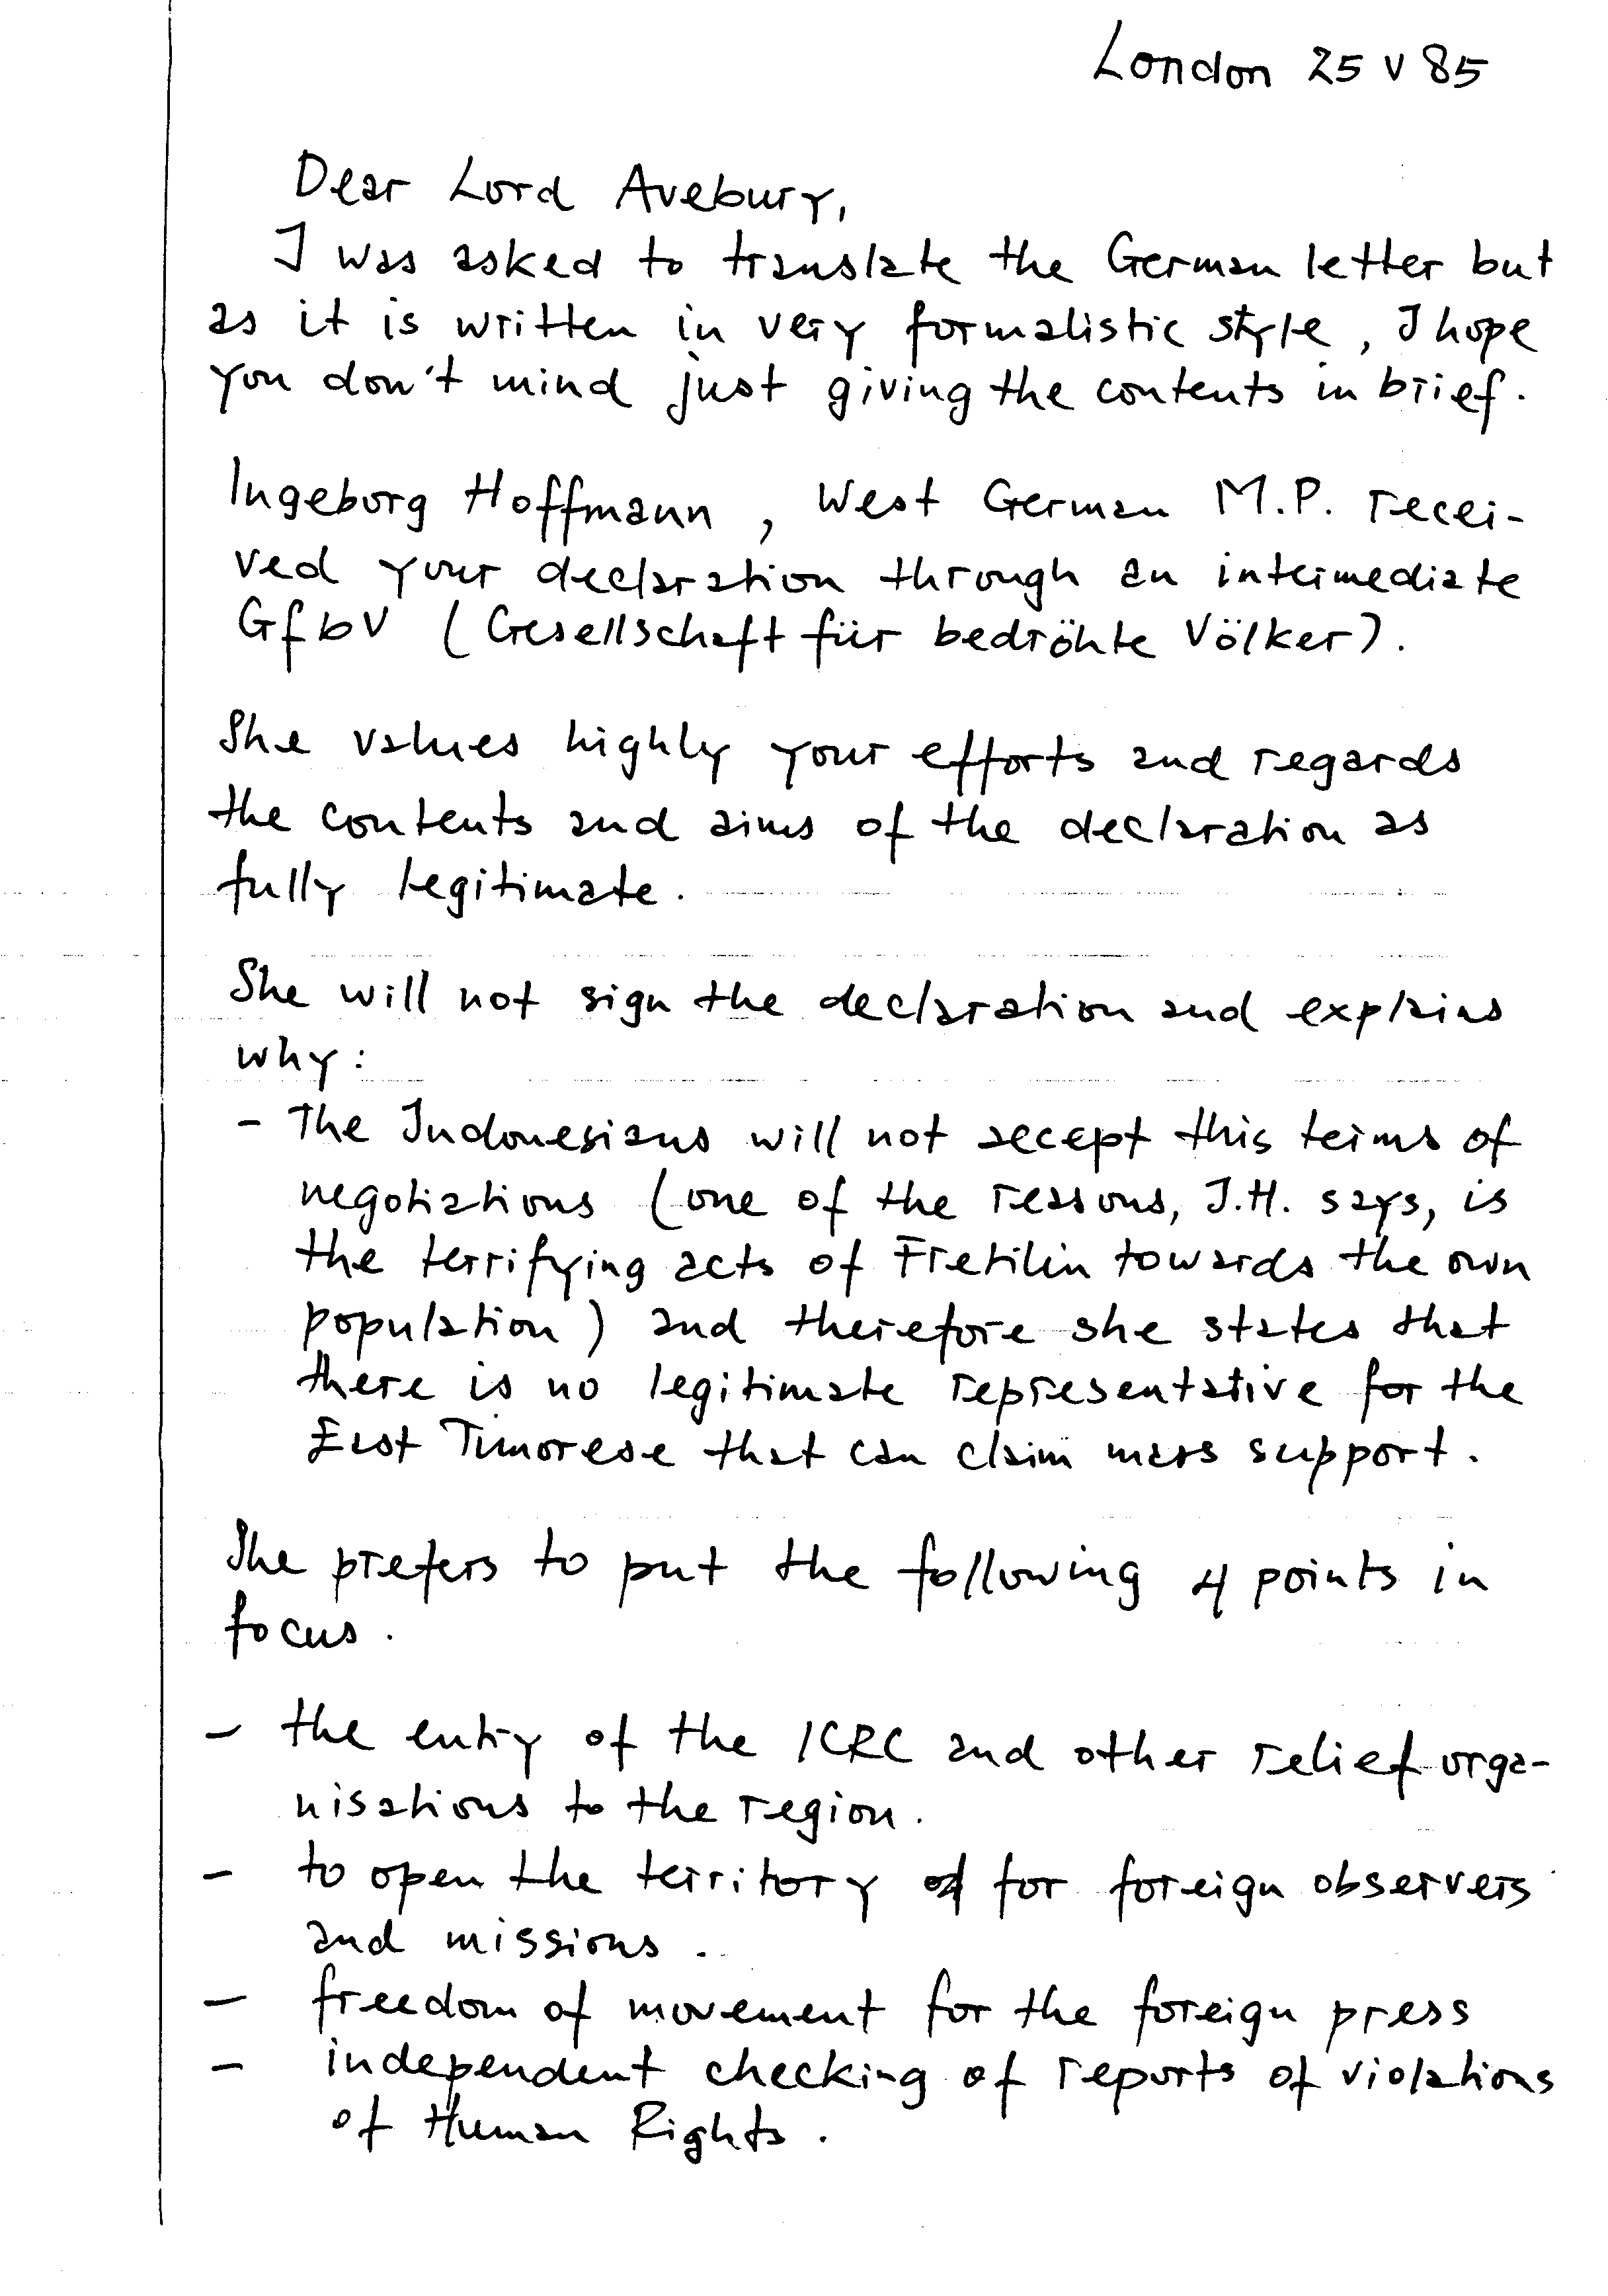 London 25 V 85
Dear Lord Avebury,
I was asked to translate the German letter but
as it is written in very formalistic style, I hope
you don't mind just giving the contents in brief.
Ingeborg Hoffmann, West German M.P. recei-
ved your declaration through an intermediate
GfbV (Gesellschaft für bedröhte Völker).
She values highly your efforts and regards
the contents and aims of the declaration as
fully legitimate.
She will not sign the declaration and explains
why:
- The Indonesians will not accept this terms of
negotiations (one of the reasons, I.H. says, is
the terrifying acts of Fretilin towards the own
population) and therefore she states that
there is no legitimate representative for the
East Timorese that can claim mass support.
She prefers to put the following 4 points in
focus.
- the entry of the ICRC and other relief orga-
nisations to the region.
- to open the territory for foreign observers
and missions.
- freedom of movement for the foreign press
- independent checking of reports of violations
of Human Rights.